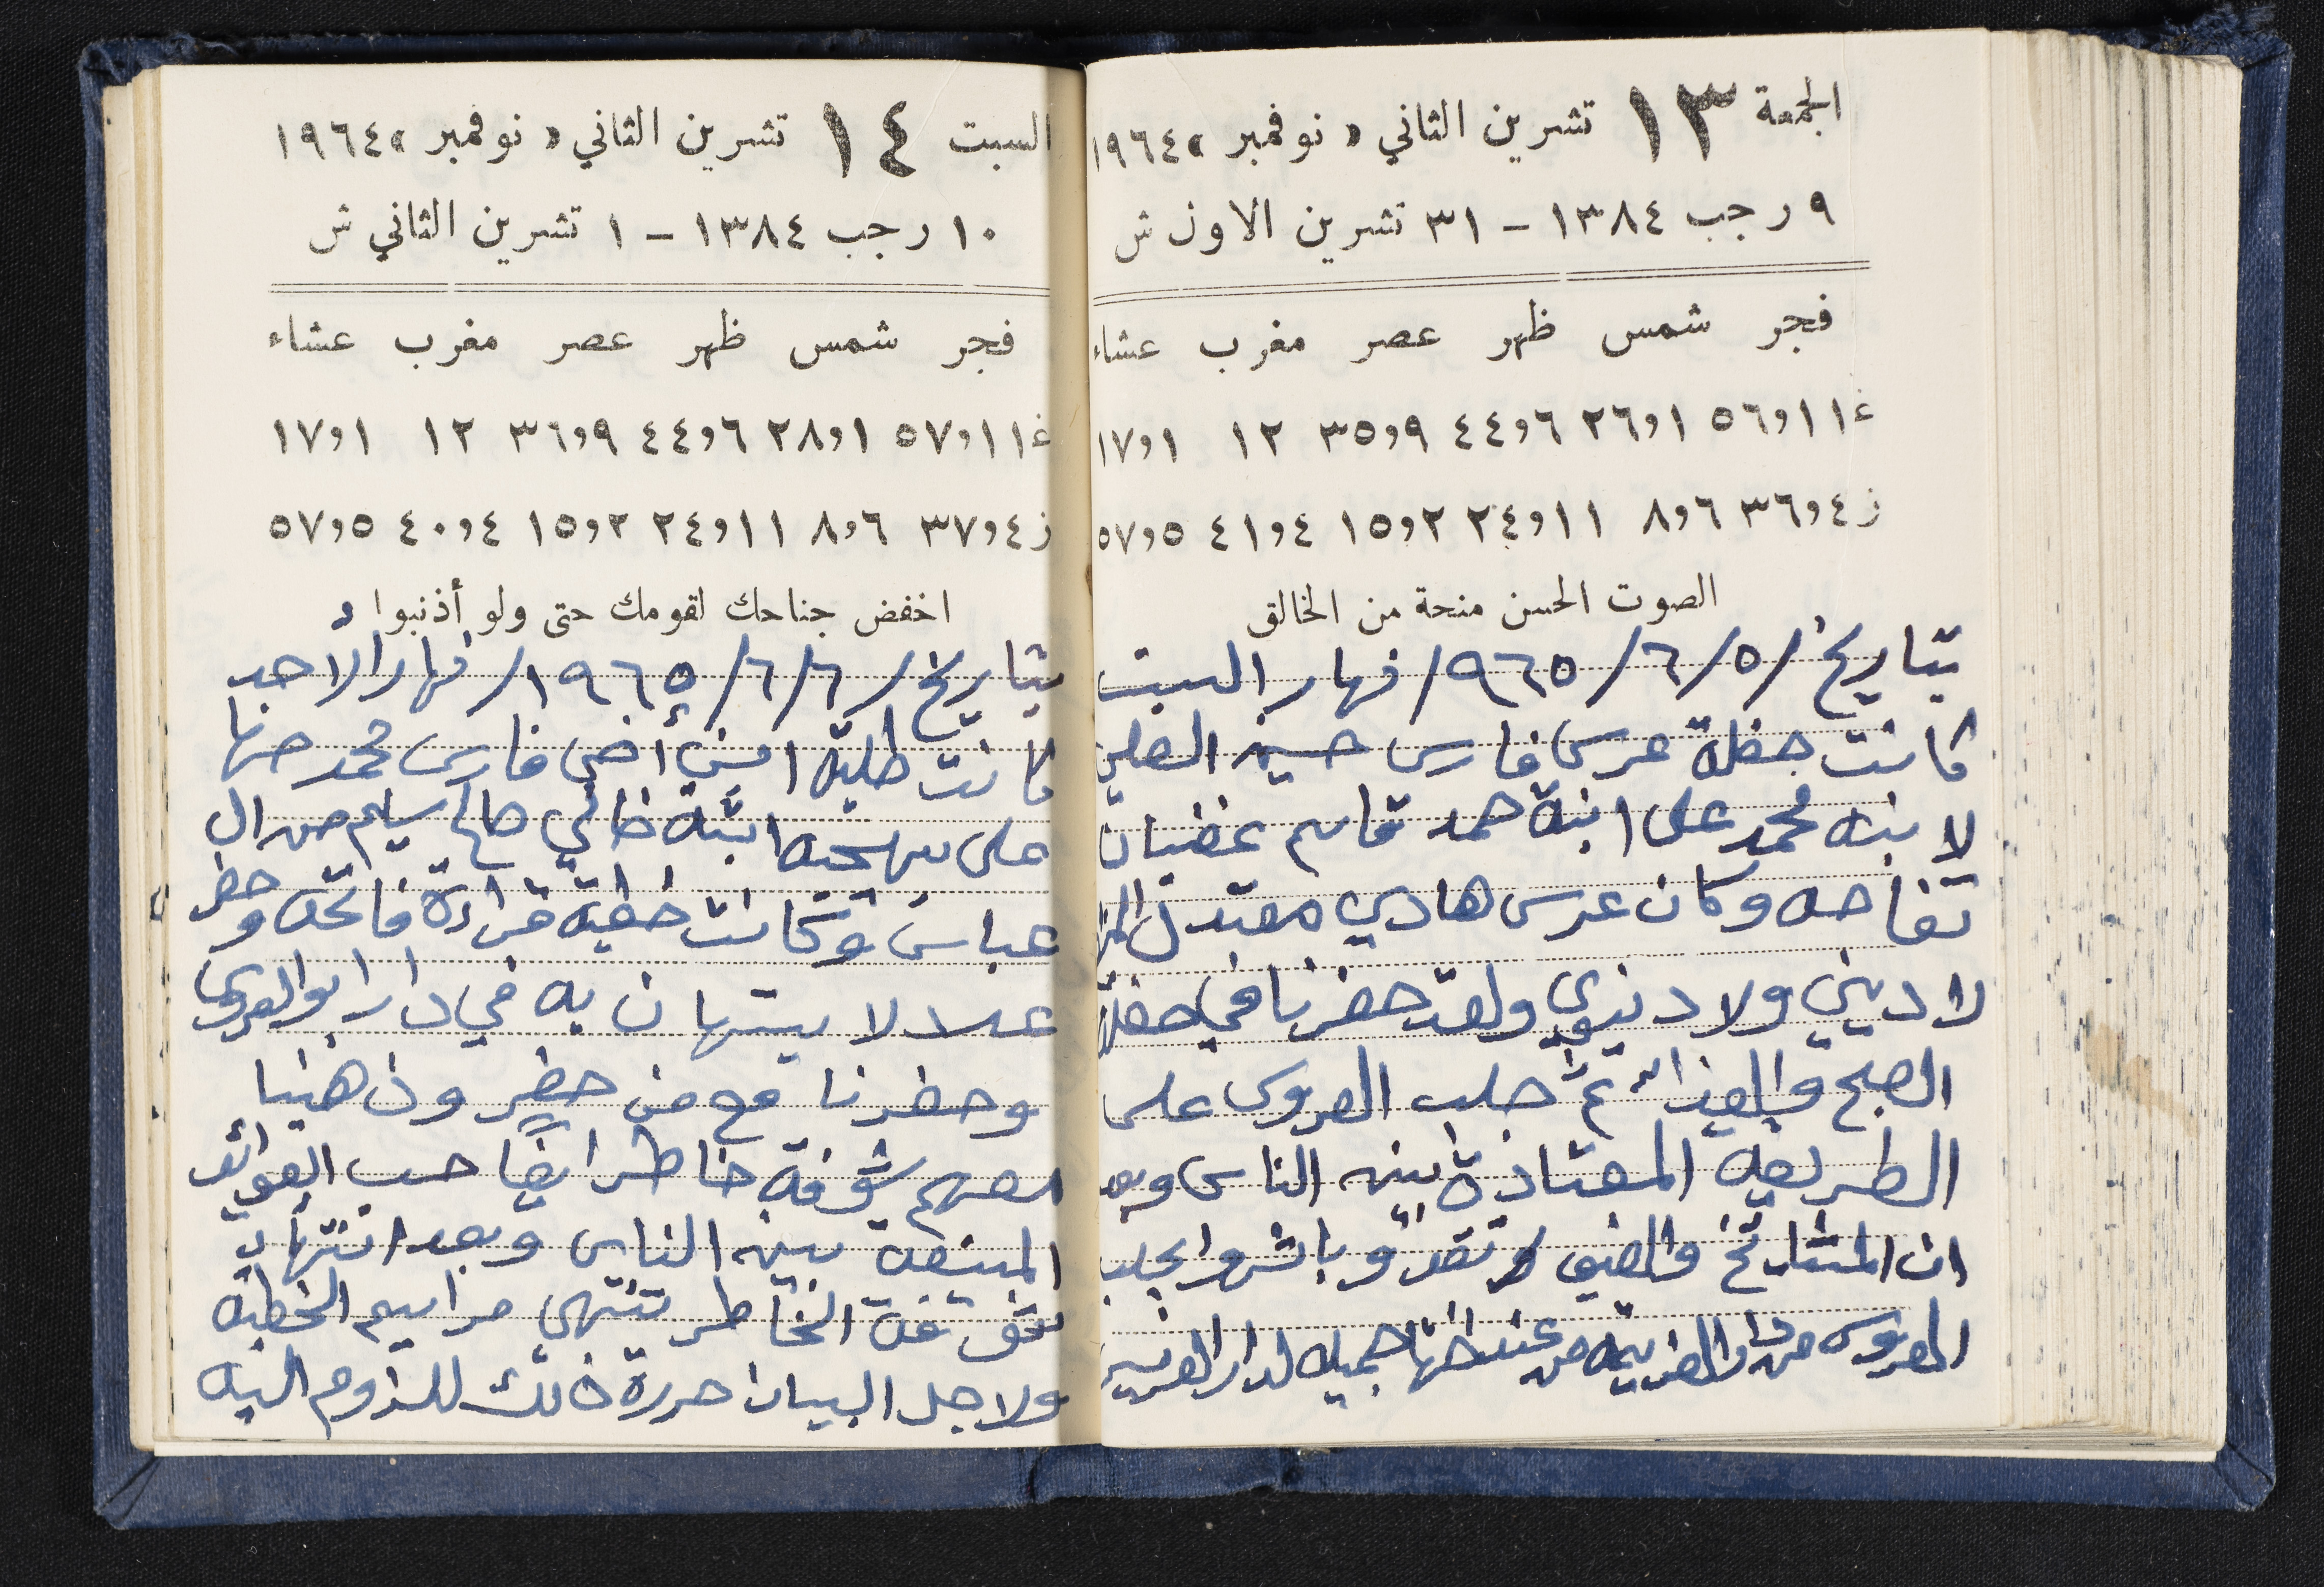 الجمعة ١٣ تشرين الثاني « نوفمبر » ١٩٦٤
٩ رجب ١٣٨٤ - ٣١ تشرين الاول ش
فجر شمس ظهر عصر مغرب عشاء
غ ١١و٥٦ ١و٢٦ ٦و٤٤ ٩و٣٥ ١٢ ١و١٧
ز ٤و٣٦ ٦و٨ ١١و٢٤ ٢و١٥ ٤و٤١ ٥و٥٧
الصوت الحسن منحة من الخالق
بتاريخ /٥/٦/٩٦٥/ نهار السبت
كانت حفلة عرس فارس حسين العلي
لابنه محمد على ابنة حمد قاسم غضبان
تفاحه وكان عرس هادي معتدل
لا ديني ولا دنيوي ولقد حضرنا في حفلة
الصبح والغذاء ثم جلب العروس على
الطريقه المعتادة بينه الناس وبعد
ان المشايخ والضيوف تغدو وباشروا بجلب
العروس من دار العزيمه من عند اختها جميله لدار العريس
السبت ١٤ تشرين الثاني « نوفمبر » ١٩٦٤
١٠ رجب ١٣٨٤ - ١ تشرين الثاني ش
فجر شمس ظهر عصر مغرب عشاء
غ ١١و٥٧ ١و٢٨ ٦و٤٤ ٩و٣٦ ١٢ ١و١٧
ز ٤و٣٧ ٦و٨ ١١و٢٤ ٢و١٥ ٤و٤٠ ٥و٥٧
اخفض جناحك لقومك حتى ولو أذنبوا
بتاريخ /٦/٦/١٩٦٥/ نهار الأحد
كانت طلبة ابن أخي فارس محمد مهنا
على بهيجه ابنة خالي صالح سليم من ال
عباس وكانت خطبة قراءة فاتحه وحضر
عدد لا يستهان به في دار ابو العروس
وحضرنا مع من حضر وذهبنا
معهم شوفة خاطر ايضا حسب العوائد
المتبعه بينه الناس وبعد انتهاء
شوفة الخاطر تنتهي مراسيم الخطبه
ولاجل البيان حررة ذالك للزوم اليه